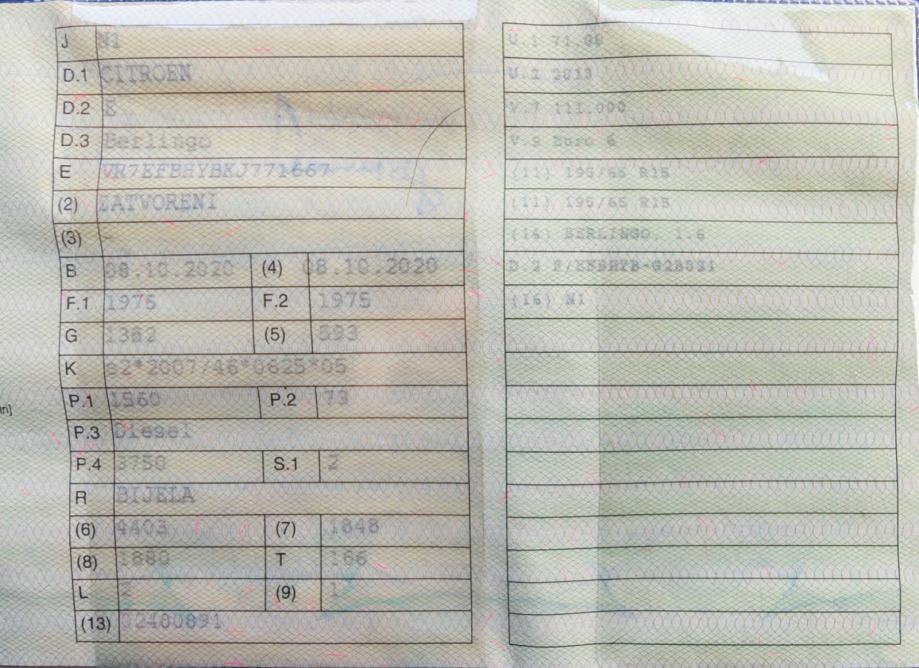 J N1
D.1 CITROEN
D.2 E
D.3 Berlingo
E VR7EFBHYBKJ771667
(2) ZATVORENI
(3)
B 08.10.2020 (4) 08.10.2020
F.1 1975 F.2 1975
G 1382 (5) 593
K e2*2007/46*0625*05
in] P.1 1560 P.2 73
P.3 Diesel
P.4 3750 S.1 2
R BIJELA
(6) 4403 (7) 1848
(8) 1880 T 166
L 2 (9) 1
(13) 02480891
U.1 71.00
U.2 2813
V.7 111.000
V.9 Euro 6
(11) 195/65 R15
(11) 195/65 R15
(14) BERLINGO, 1.6
D.2
(16) N1